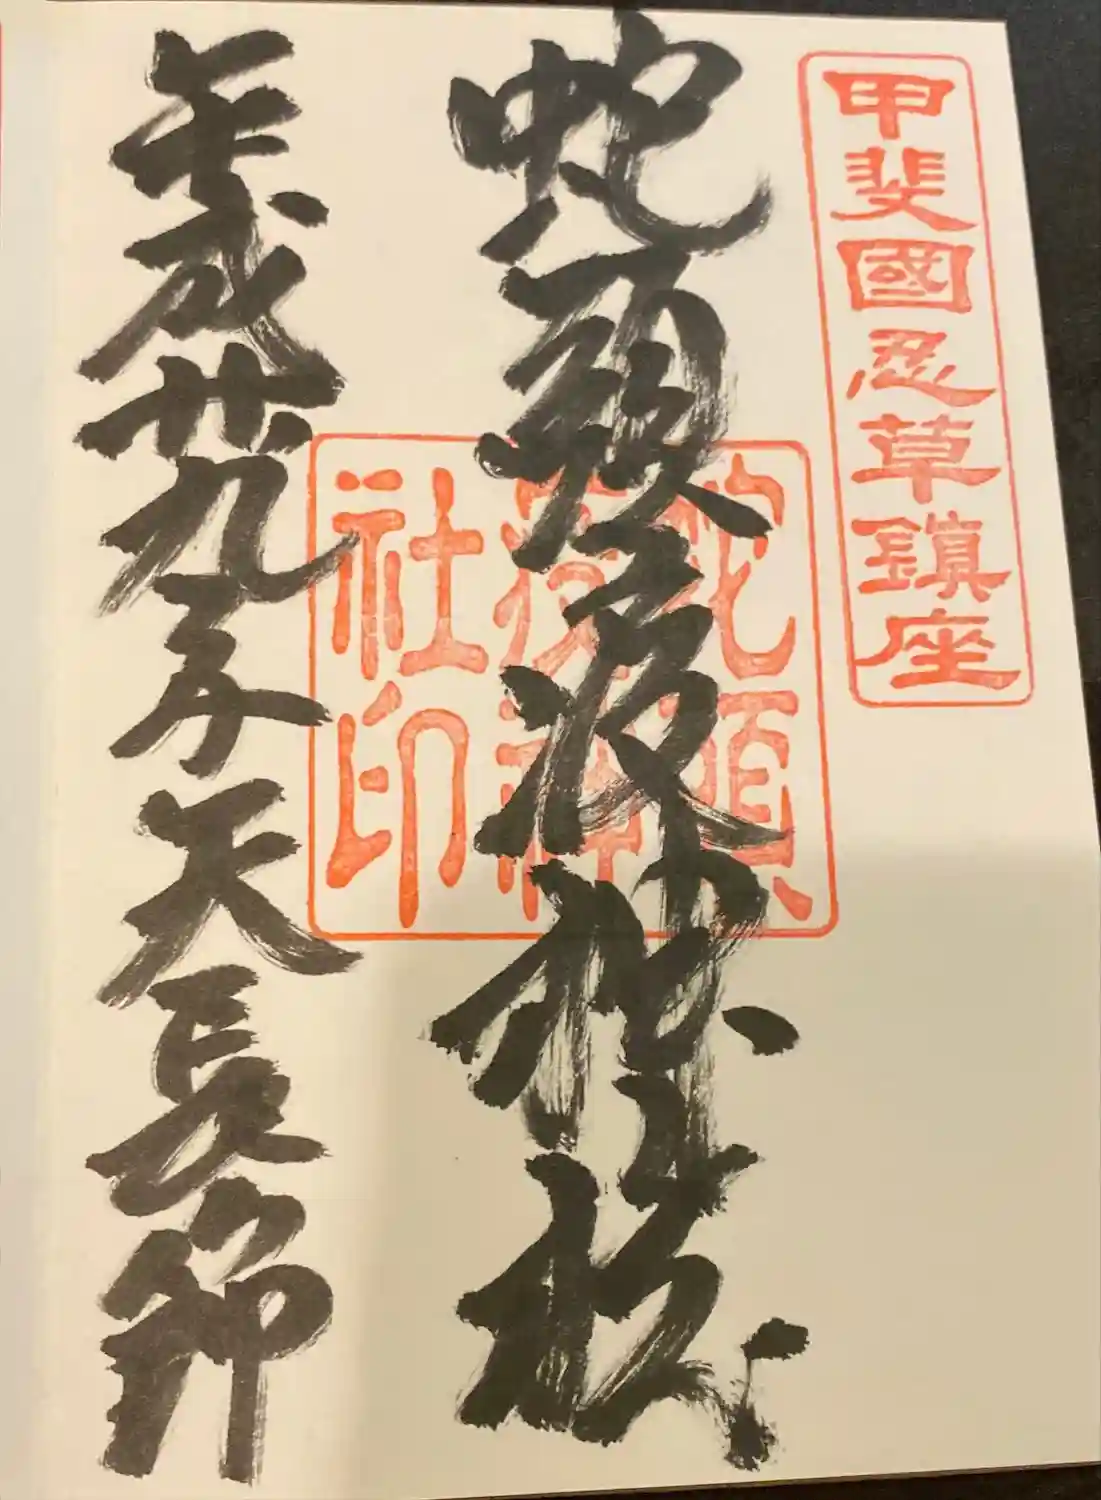 甲斐國忍草鎮座
蛇頭疫神社
平成廿九年天長節
社印